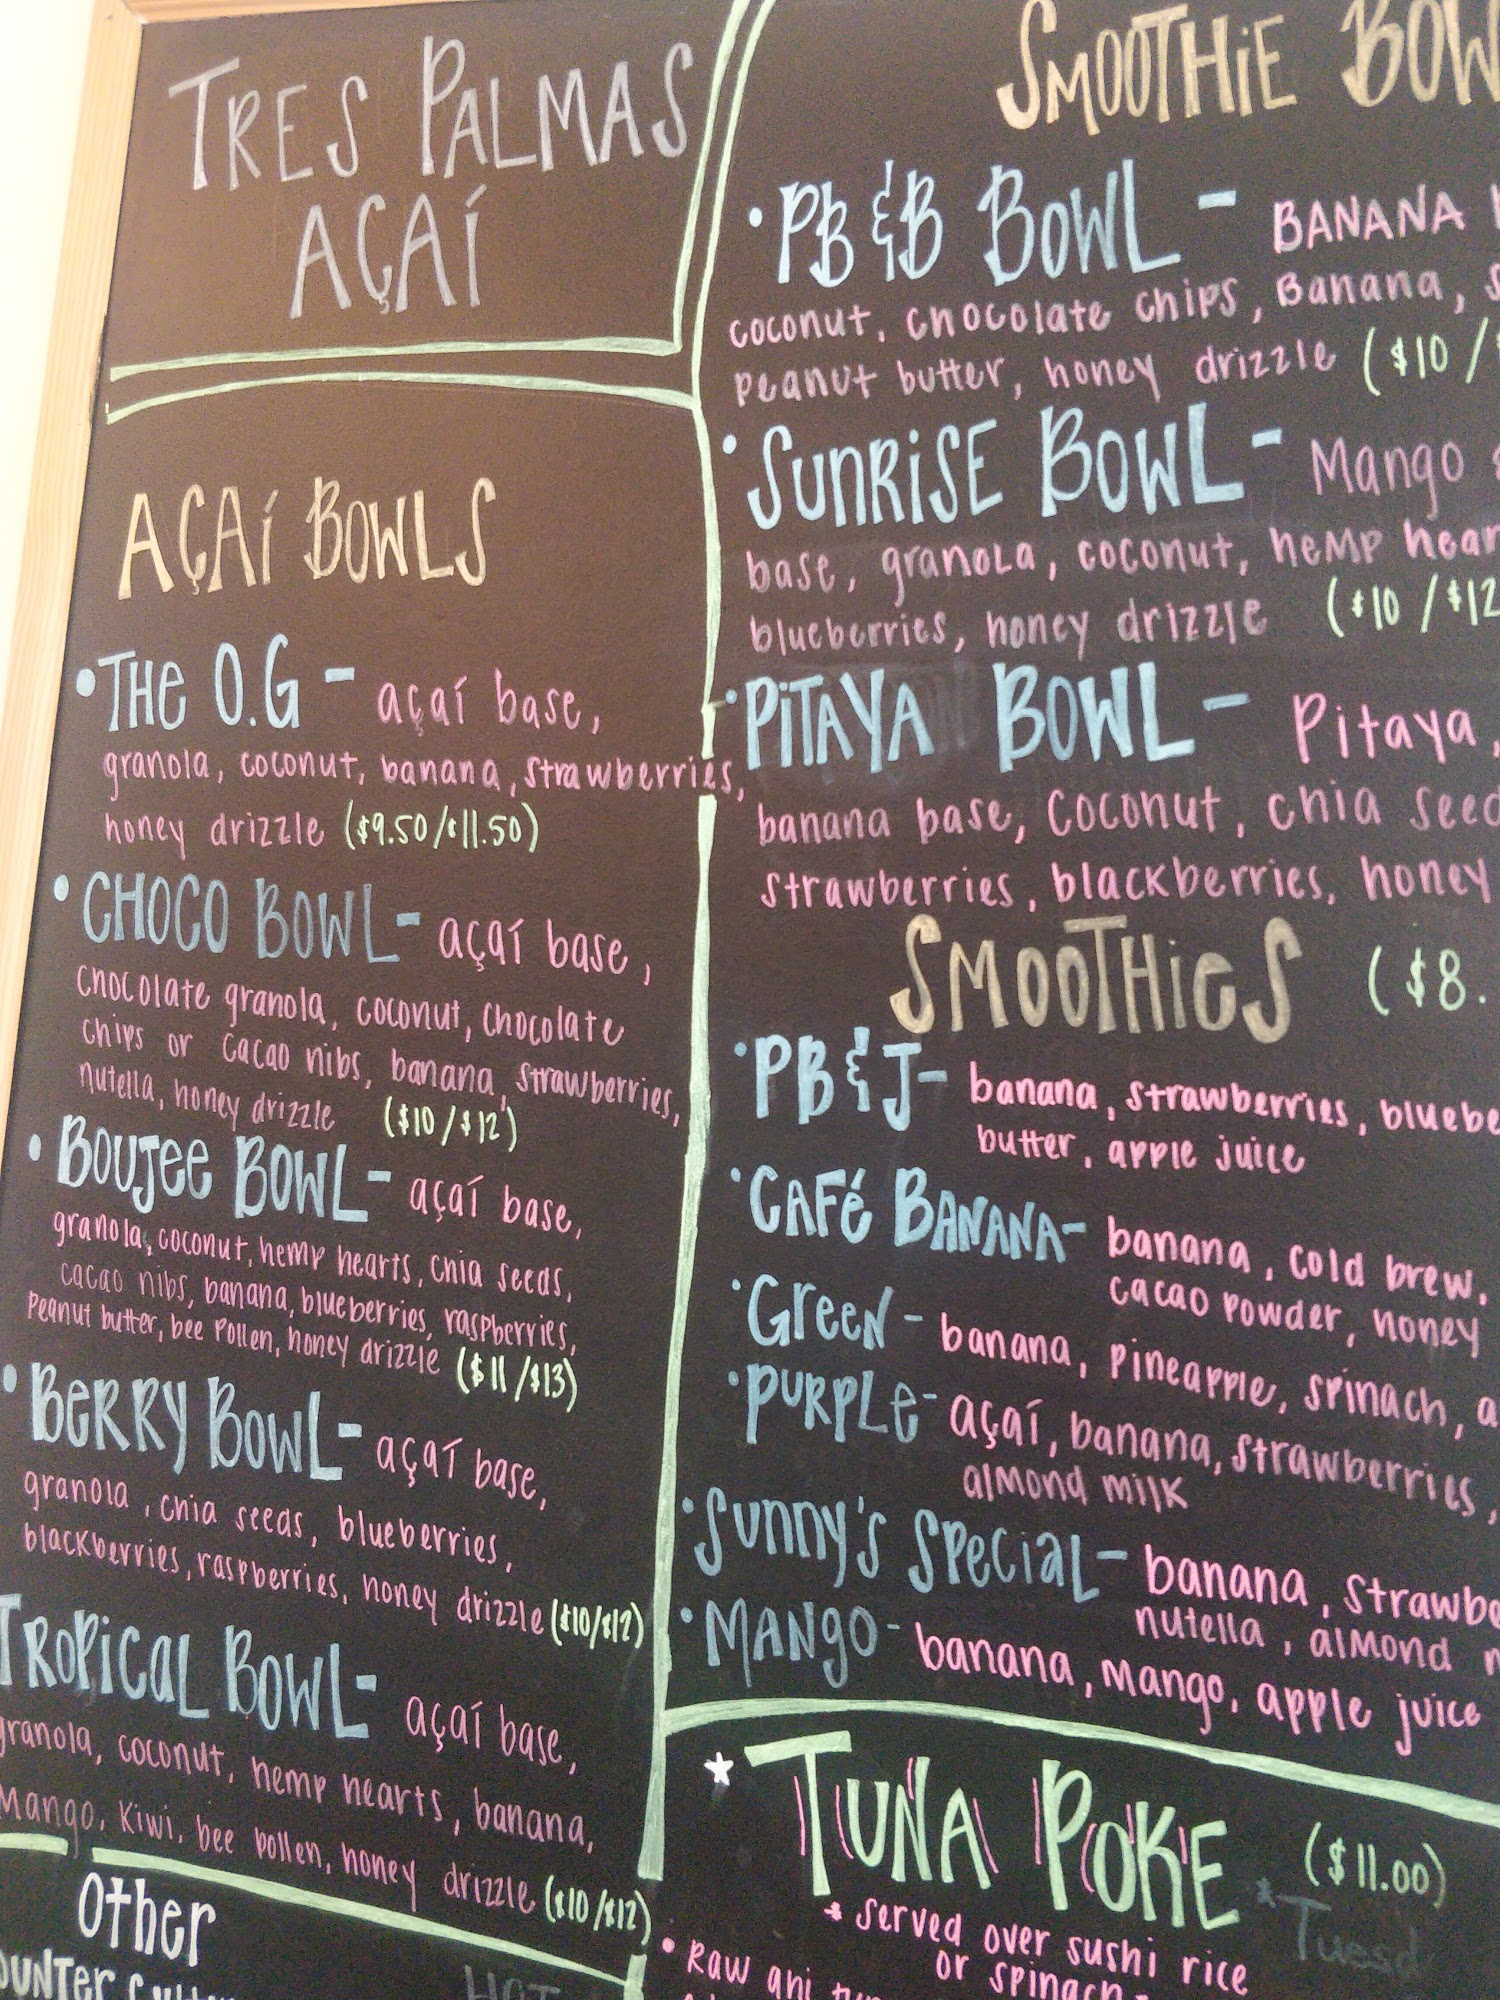 TRES PALMAS
AÇAÍ
AÇAÍ BOWLS
•THE O.G - açaí base,
granola, coconut, banana, strawberries,
honey drizzle ($9.50/$11.50)
•CHOCO BOWL- açaí base,
chocolate granola, coconut, chocolate
chips or cacao nibs, banana, strawberries,
nutella, honey drizzle ($10/$12)
•BOUJEE BOWL- açaí base,
granola, coconut, hemp hearts, chia seeds,
cacao nibs, banana, blueberries, raspberries,
Peanut butter, bee pollen, honey drizzle ($11/$13)
•BERRY BOWL- açaí base,
granola, chia seeds, blueberries,
blackberries, raspberries, honey drizzle ($10/$12)
TROPICAL BOWL- açaí base,
granola, coconut, hemp hearts, banana,
Mango, Kiwi, bee pollen, honey drizzle ($10/$12)
Other
SMOOTHIE BOW
•PB &B BOWL - BANANA
coconut, chocolate chips, Banana,
peanut butter, honey drizzle ($10/
•SUNRISE BOWL - Mango
base, granola, coconut, hemp hear
blueberries, honey drizzle ($10/$12
•PITAYA BOWL - Pitaya,
banana base, coconut, chia seed
strawberries, blackberries, honey
SMOOTHIES ($8.
•PB &J- banana, strawberries, bluebe
butter, apple juice
•CAFÉ BANANA- banana, cold brew,
cacao powder, honey
•GREEN - banana, pineapple, spinach, a
•PURPLE- açaí, banana, strawberries,
almond milk
•SUNNY'S SPECIAL- banana, strawbe
nutella, almond m
•MANGO- banana, mango, apple juice
TUNA POKE ($11.00)
* served over sushi rice
or spinach
• Raw ahi tu